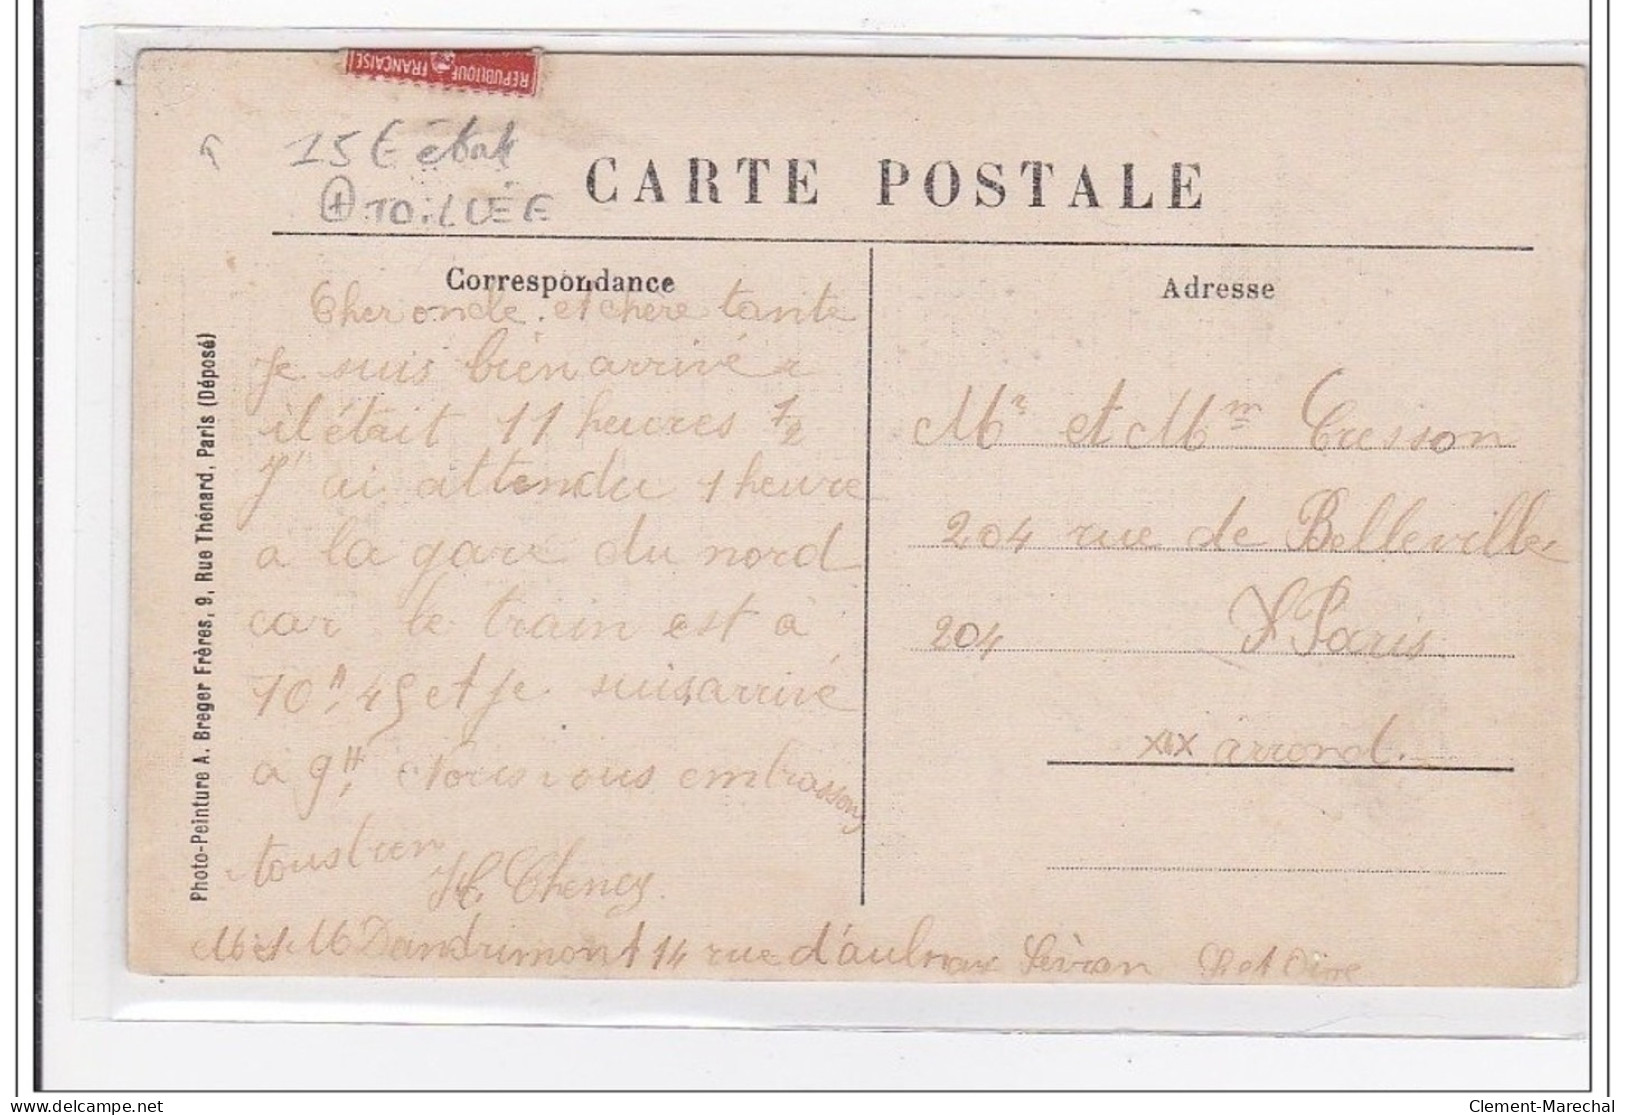 REPUBLIQUE FRANÇAISE
15 € état
+ TOILLÉE
CARTE POSTALE
Correspondance
Adresse
Cher oncle et chère tante
Je suis bien arrivé
il était 11 heures 1/2
J'ai attendu 1 heure
a la gare du nord
car le train est à
10H 45 et je suis arrivé
a 9H Nous vous embrassons
tous bien
H. Chency
M et M Dandrimont 14 rue d'aulnay Sèvran Set Oise
Mr et Mm Cresson
204 rue de Belleville
204 Paris
XIX arrond.
Photo-Peinture A. Breger Frères, 9, Rue Thénard, Paris (Déposé)
delcampe.net
Clement-Marechal